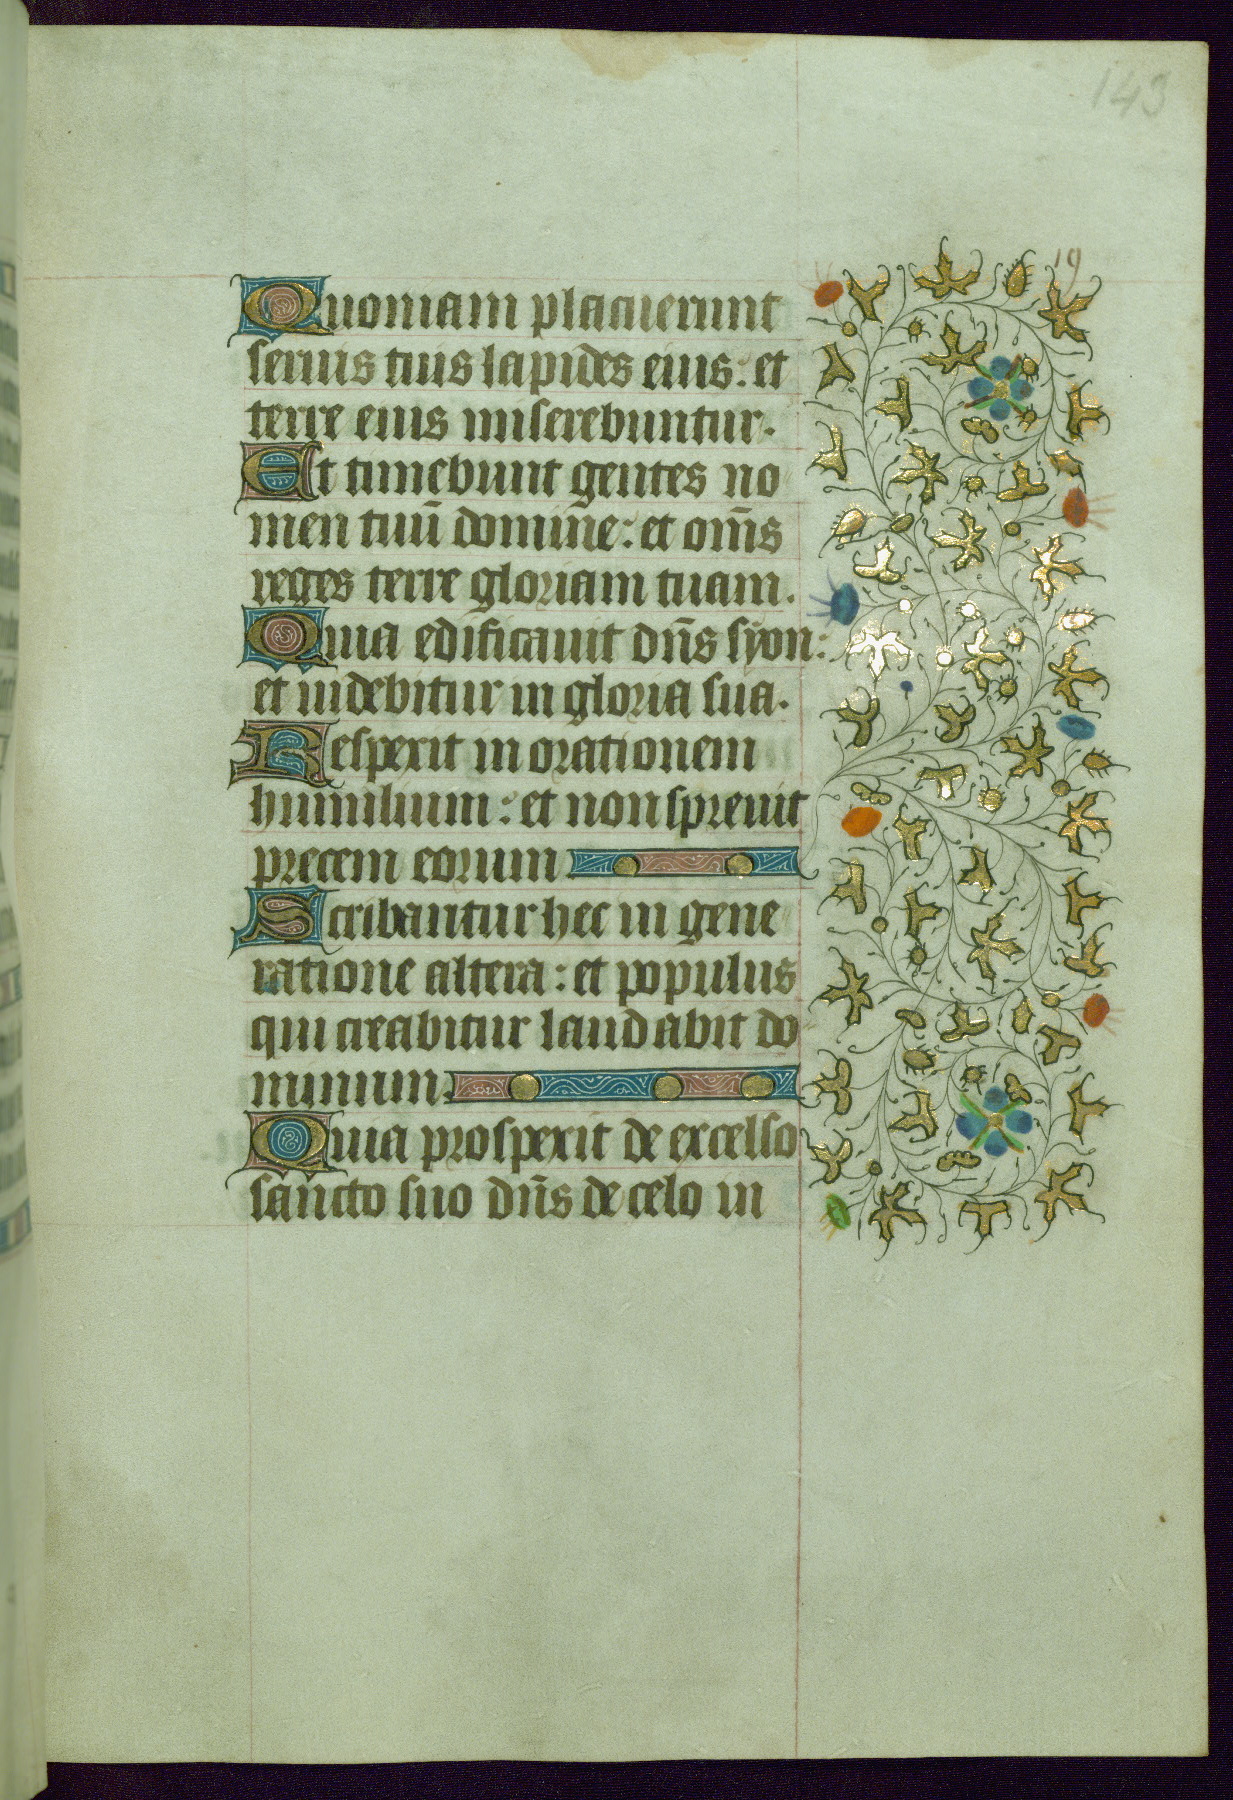 143
19
Quoniam placuerunt
seruis tuis lapides eius: et
terre eius miserebuntur.
Et timebunt gentes no
men tuū domine: et om̄s
reges terre gloriam tuam.
Quia edificauit dn̄s syon:
et uidebitur in gloria sua.
Respexit in orationem
humilium: et non spreuit
precem eorum
Scribantur hec in gene
ratione altera: et populus
qui creabitur laudabit do
minum.
Quia prospexit de excelso
sancto suo dn̄s de celo in